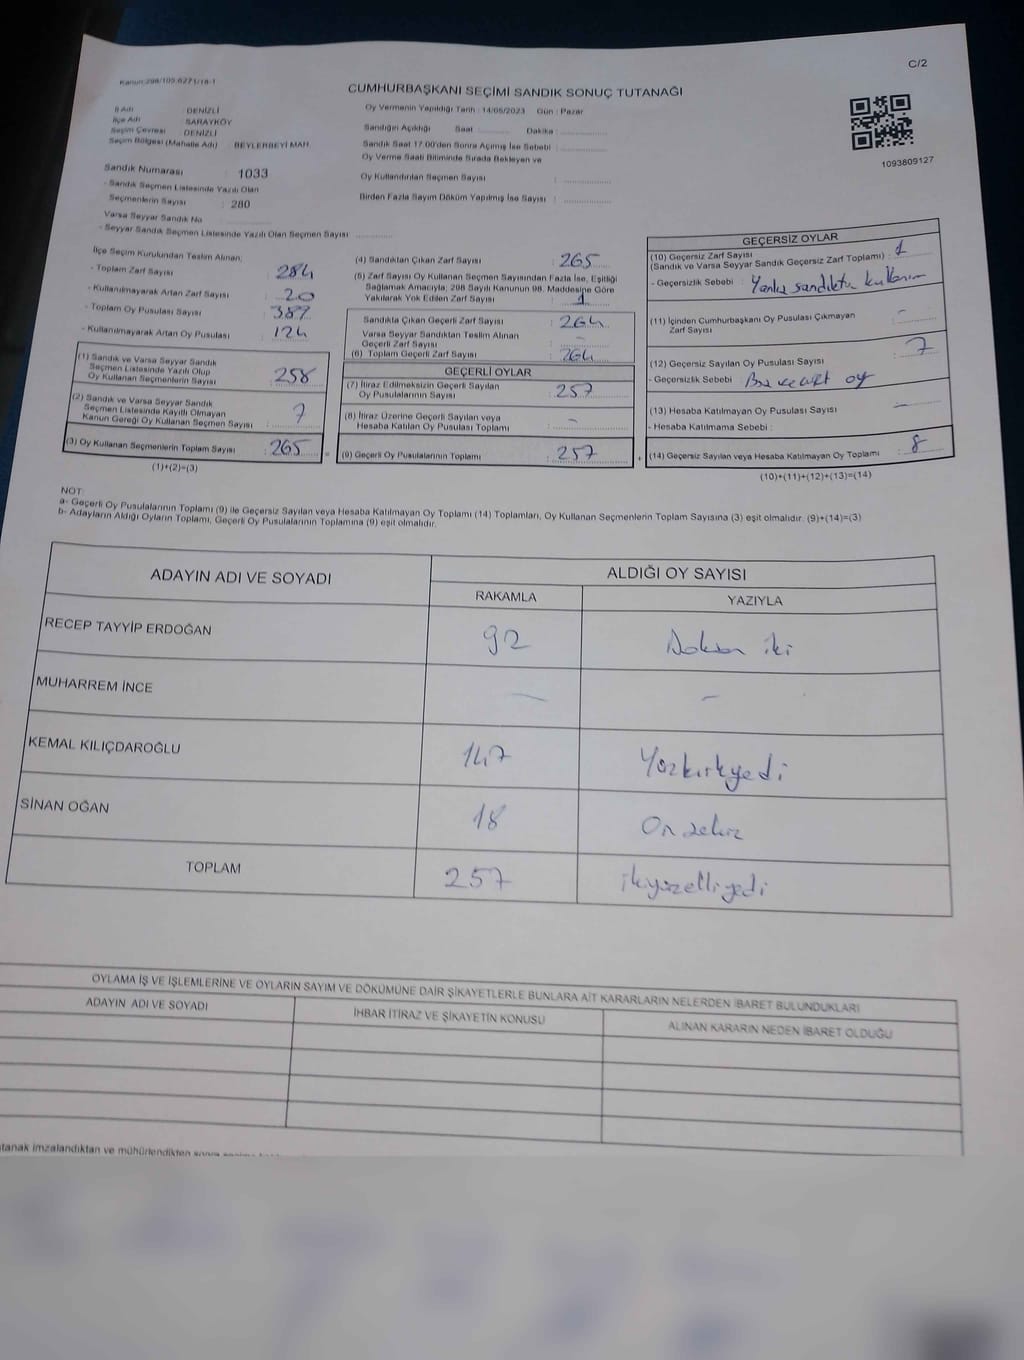 C/2
Kanun:298/105,6271/18-1
CUMHURBAŞKANI SEÇİMİ SANDIK SONUÇ TUTANAĞI
İl Adı DENİZLİ
İlçe Adı SARAYKÖY
Seçim Çevresi DENİZLİ
Seçim Bölgesi (Mahalle Adı) : BEYLERBEYİ MAH.
Sandık Numarası : 1033
- Sandık Seçmen Listesinde Yazılı Olan
Seçmenlerin Sayısı : 280
Varsa Seyyar Sandık No
- Seyyar Sandık Seçmen Listesinde Yazılı Olan Seçmen Sayısı
Oy Vermenin Yapıldığı Tarih : 14/05/2023 Gün : Pazar
Sandığın Açıldığı Saat Dakika :
Sandık Saat 17.00'den Sonra Açımış İse Sebebi :
Oy Verme Saati Bitiminde Sırada Bekleyen ve
Oy Kullandırılan Seçmen Sayısı :
Birden Fazla Sayım Döküm Yapılmış İse Sayısı :
1093809127
İlçe Seçim Kurulundan Teslim Alınan;
- Toplam Zarf Sayısı : 284
- Kullanılmayarak Artan Zarf Sayısı : 20
- Toplam Oy Pusulası Sayısı : 389
- Kullanılmayarak Artan Oy Pusulası : 124
(1) Sandık ve Varsa Seyyar Sandık
Seçmen Listesinde Yazılı Olup
Oy Kullanan Seçmenlerin Sayısı : 258
(2) Sandık ve Varsa Seyyar Sandık
Seçmen Listesinde Kayıtlı Olmayan
Kanun Gereği Oy Kullanan Seçmen Sayısı : 7
(3) Oy Kullanan Seçmenlerin Toplam Sayısı : 265
(1)+(2)=(3)
(4) Sandıktan Çıkan Zarf Sayısı : 265
(5) Zarf Sayısı Oy Kullanan Seçmen Sayısından Fazla İse, Eşitliği
Sağlamak Amacıyla; 298 Sayılı Kanunun 98. Maddesine Göre
Yakılarak Yok Edilen Zarf Sayısı : 1
Sandıkta Çıkan Geçerli Zarf Sayısı : 264
Varsa Seyyar Sandıktan Teslim Alınan
Geçerli Zarf Sayısı : -
(6) Toplam Geçerli Zarf Sayısı : 264
GEÇERLİ OYLAR
(7) İtiraz Edilmeksizin Geçerli Sayılan
Oy Pusulalarının Sayısı : 257
(8) İtiraz Üzerine Geçerli Sayılan veya
Hesaba Katılan Oy Pusulası Toplamı : -
(9) Geçerli Oy Pusulalarının Toplamı : 257
GEÇERSİZ OYLAR
(10) Geçersiz Zarf Sayısı
(Sandık ve Varsa Seyyar Sandık Geçersiz Zarf Toplamı) : 1
- Geçersizlik Sebebi : Yanlış sandıkta kullanım
(11) İçinden Cumhurbaşkanı Oy Pusulası Çıkmayan
Zarf Sayısı : -
(12) Geçersiz Sayılan Oy Pusulası Sayısı : 7
- Geçersizlik Sebebi : oy
(13) Hesaba Katılmayan Oy Pusulası Sayısı : -
- Hesaba Katılmama Sebebi :
(14) Geçersiz Sayılan veya Hesaba Katılmayan Oy Toplamı : 8
(10)+(11)+(12)+(13)=(14)
NOT:
a- Geçerli Oy Pusulalarının Toplamı (9) ile Geçersiz Sayılan veya Hesaba Katılmayan Oy Toplamı (14) Toplamları, Oy Kullanan Seçmenlerin Toplam Sayısına (3) eşit olmalıdır. (9)+(14)=(3)
b- Adayların Aldığı Oyların Toplamı, Geçerli Oy Pusulalarının Toplamına (9) eşit olmalıdır.
ADAYIN ADI VE SOYADI
ALDIĞI OY SAYISI
RAKAMLA YAZIYLA
RECEP TAYYİP ERDOĞAN 92 Doksan iki
MUHARREM İNCE - -
KEMAL KILIÇDAROĞLU 147 Yüzkırkyedi
SİNAN OĞAN 18 On sekiz
TOPLAM 257 ikiyüzelliyedi
OYLAMA İŞ VE İŞLEMLERİNE VE OYLARIN SAYIM VE DÖKÜMÜNE DAİR ŞİKAYETLERLE BUNLARA AİT KARARLARIN NELERDEN İBARET BULUNDUKLARI
ADAYIN ADI VE SOYADI İHBAR İTİRAZ VE ŞİKAYETİN KONUSU ALINAN KARARIN NEDEN İBARET OLDUĞU
tanak imzalandıktan ve mühürlendikten sonra